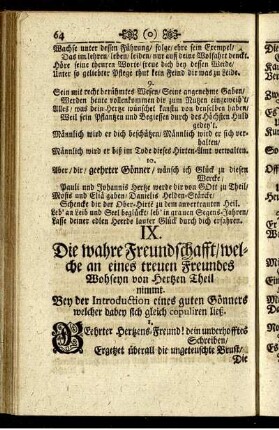 64 (o)
Wachse unter dessen Führung/ folge/ ehre sein Exempel/
Das im lehren/ leben/ leiden/ nur auff deine Wolfahrt denckt.
Höre seine theuren Worte/ freue dich bey dessen Werde/
Unter so geliebter Pflege thut kein Feind dir was zu Leide.
9.
Sein mit recht berühmtes Wesen/ Seine angenehme Gaben/
Werden heute vollenkommen dir zum Nutzen eingeweiht/
Alles/ was dein Hertze wünschet kanstu von denselben haben/
Weil sein Pflantzen und Begiessen durch des Höchsten Huld
gedeyt.
Männlich wird er dich beschützen/ Männlich wird er sich verhalten/
Männlich wird er biß im Tode dieses Hirten-Amt verwalten.
10.
Aber/ dir/ geehrter Gönner/ wünsch ich Glück zu diesen
Wercke;
Pauli und Johannis Hertze werde dir von Gott zu Theil/
Mosis und Eliä gaben/ Daniels Helden-Stärcke/
Schencke dir der Ober-Hirte zu dem anvertrauten Heil.
Leb' an Leib und Seel beglückt/ leb' in grauen Seegens-Jahren/
Lasse deiner edlen Heerde lauter Glück durch dich erfahren.
IX.
Die wahre Freundschafft/ welche
an eines treuen Freundes
Wohlseyn von Hertzen Theil
nimmt.
Bey der Introduction eines guten Gönners
welcher dabey sich gleich copuliren ließ.
1.
GEehrter Hertzens-Freund! dein unverhofftes
Schreiben/
Ergetzet überall die ungeteuschte Brust/
Die